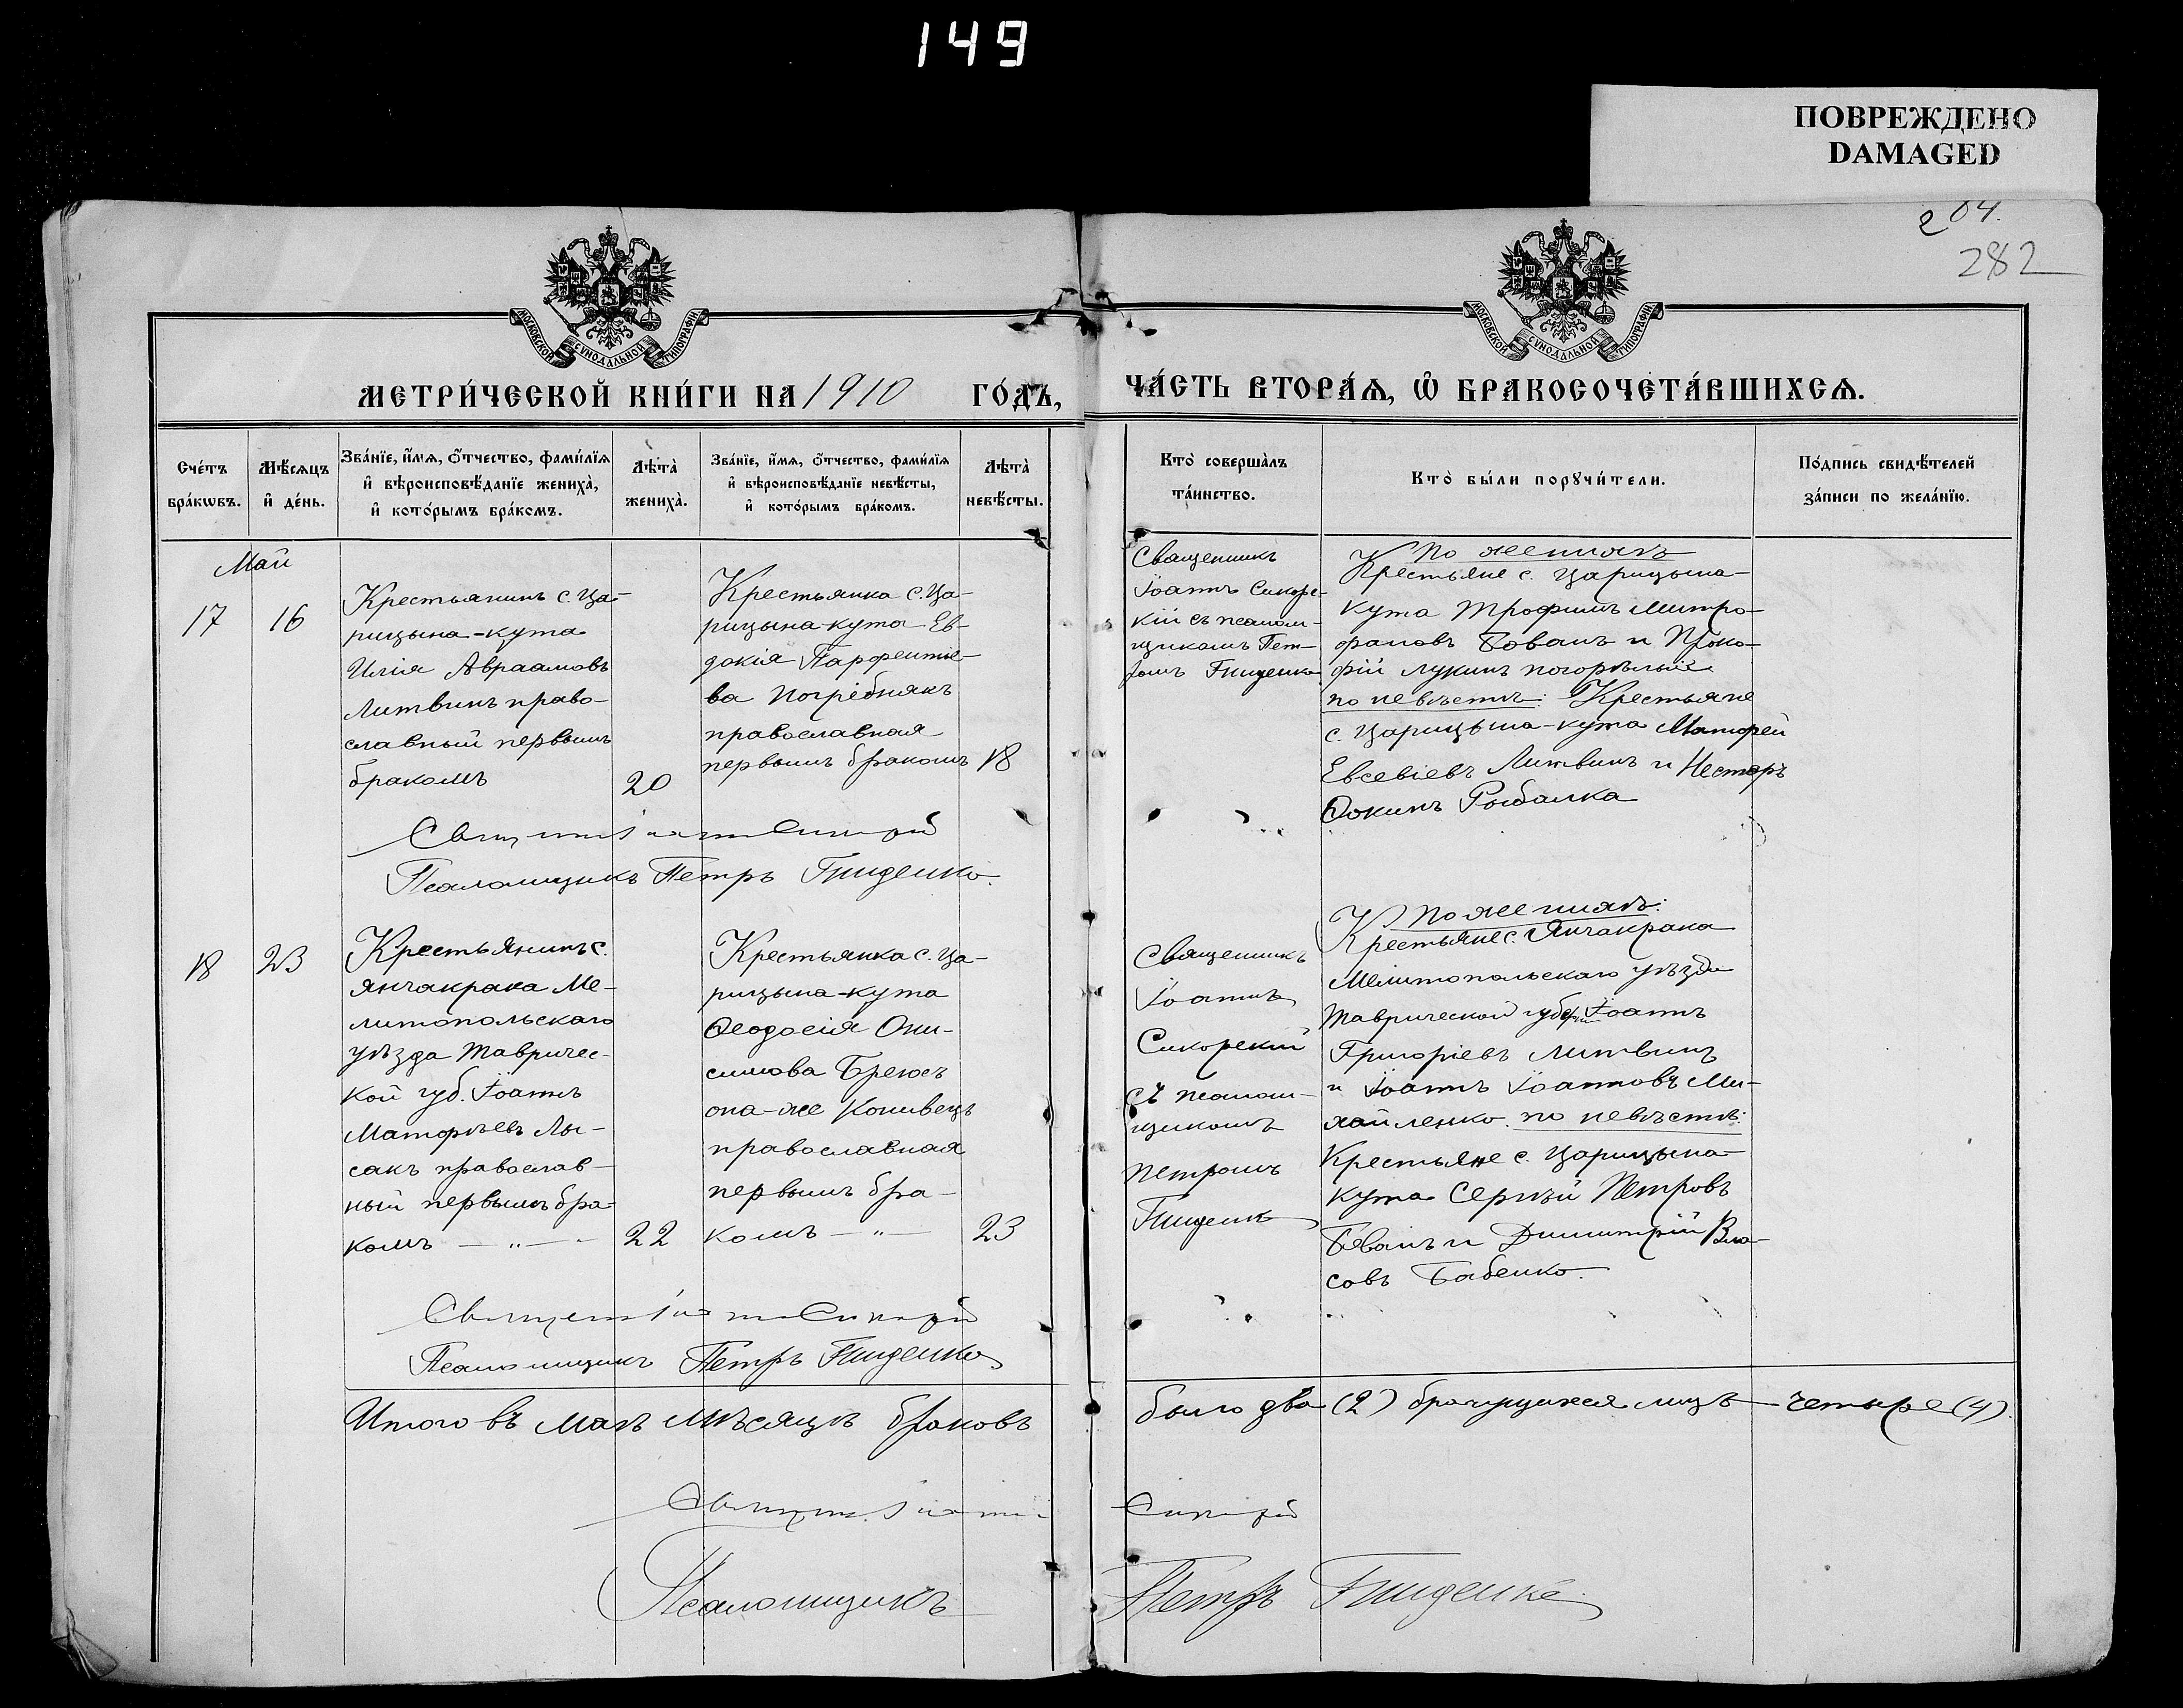 149
ПОВРЕЖДЕНО
DAMAGED
204.
282
МОСКОВСКОЙ СѴНОДАЛЬНОЙ ТИПОГРАФІИ
МОСКОВСКОЙ СѴНОДАЛЬНОЙ ТИПОГРАФІИ
МЕТРИ́ЧЕСКОЙ КНИ́ГИ НА 1910 ГО́ДЪ,
ЧА́СТЬ ВТОРА́Ѧ, Ѽ БРАКОСОЧЕТА́ВШИХСѦ.
Сче́тъ
бра́кѡвъ.
Мѣ́сяцъ
и҆ де́нь.
Зва́нїе, и҆́мѧ, ѻ҆́тчество, фами́лїѧ
и҆ вѣроисповѣ́данїе жениха̀,
и҆ кото́рымъ бра́комъ.
Лѣта̀
жениха̀.
Зва́нїе, и҆́мѧ, ѻ҆́тчество, фами́лїѧ
и҆ вѣроисповѣ́данїе невѣ́сты,
и҆ кото́рымъ бра́комъ.
Лѣта̀
невѣ́сты.
Кто̀ соверша́лъ
та́инство.
Кто̀ бы́ли порꙋчи́тели.
По́дпись свидѣ́телей
за́писи по жела́нїю.
Май
17
16
Крестьянинъ с. Ца-
рицына-кута
Илія Авраамовъ
Литвинъ право-
славный первымъ
бракомъ
20
Крестьянка с. Ца-
рицына-кута Ев-
докія Парфентіе-
ва Погрібнякъ
православная
первымъ бракомъ
18
Священникъ
Іоаннъ Сикорс-
кій съ псалом-
щикомъ Пет-
ромъ Гниденко
По женихѣ
Крестьяне с. Царицына-
кута Трофимъ Митро-
фановъ Бованъ и Проко-
фій Лукинъ Погорѣлый
по невѣстѣ: Крестьяне
с. Царицына-кута Матфей
Евсевіевъ Литвинъ и Несторъ
Ѳокинъ Рыбалка
Священ. Іоаннъ Сикорскій
Псаломщикъ Петръ Гниденко.
18
23
Крестьянинъ с.
Янчакрака Ме-
литопольскаго
уѣзда Тавричес-
кой губ. Іоаннъ
Матфѣевъ Лы-
сакъ православ-
ный первымъ бра-
комъ — „ —
22
Крестьянка с. Ца-
рицына-кута
Ѳеодосія Они-
симова Бреюсъ
она-же Коливецъ
православная
первымъ бра-
комъ — „ —
23
Священникъ
Іоаннъ
Сикорскій
съ псалом-
щикомъ
Петромъ
Гниденк
По женихѣ:
Крестьяне с. Янчакрака
Мелитопольскаго уѣзда
Таврической губерніи Іоаннъ
Григоріевъ Литвинъ
и Іоаннъ Іоанновъ Ми-
хайленко. по невѣстѣ:
Крестьяне с. Царицына-
кута Сергѣй Петровъ
Бованъ и Димитрій Вла-
совъ Бабенко.
Священ. Іоаннъ Сикорскій
Псаломщикъ Петръ Гниденко
Итого въ маѣ мѣсяцѣ браковъ было два (2) брачущихся лицъ — четыре (4).
Священ. Іоаннъ Сикорскій
Псаломщикъ Петръ Гниденко